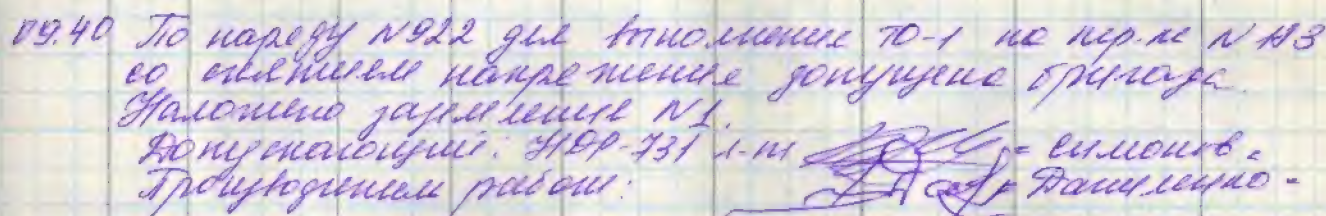 09.40 По наряду №922 для выполнения ТО-1 на пер-ле №
со снятием напряжения допущена бригада.
Наложено заземление №1.
Допускающий: -731 л-т = Симонов =
Производитель работ: = Даниленко =